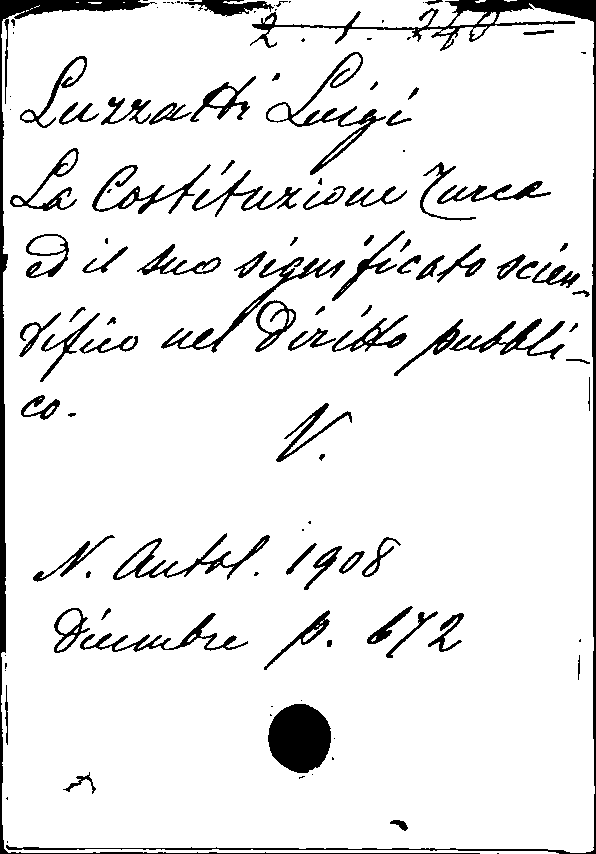 2. 1. 240 -
Luzzatti Luigi
La Costituzione Turca
ed il suo significato scien-
tifico nel Diritto pubbli-
co.
V.
N. Antol. 1908
Dicembre p. 672